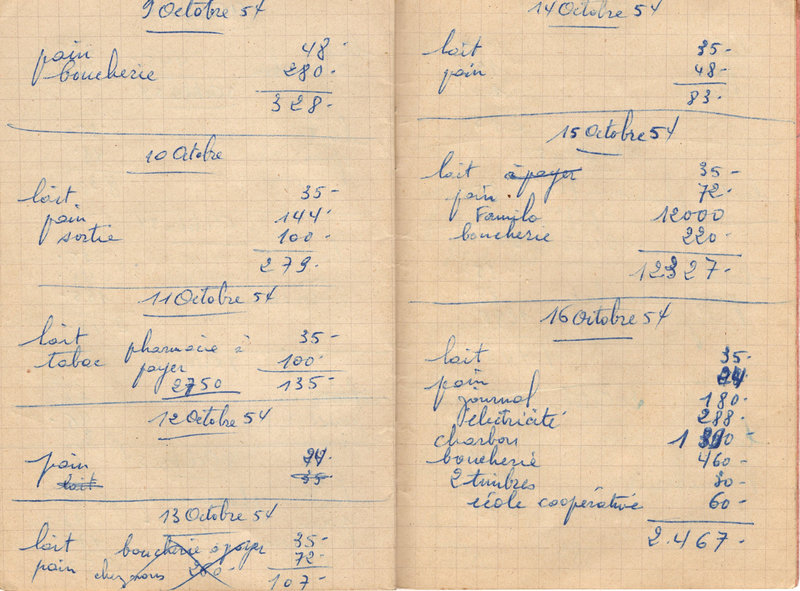 9 Octobre 54
pain 48-
boucherie 280-
328-
10 Octobre
lait 35-
pain 144-
sortie 100-
279-
11 Octobre 54
lait pharmacie à 35-
tabac payer 100-
2750 135-
12 Octobre 54
pain
lait 35-
13 Octobre 54
lait boucherie à payer 35-
pain chez nous 200- 72-
107-
14 Octobre 54
lait 35-
pain 48-
83-
15 Octobre 54
lait à payer 35-
pain 72-
Familo 12000
boucherie 220-
12327-
16 Octobre 54
lait 35-
pain
journal 180-
électricité 288-
charbon
boucherie 460-
2 timbres 30-
école coopérative 60-
2.467-